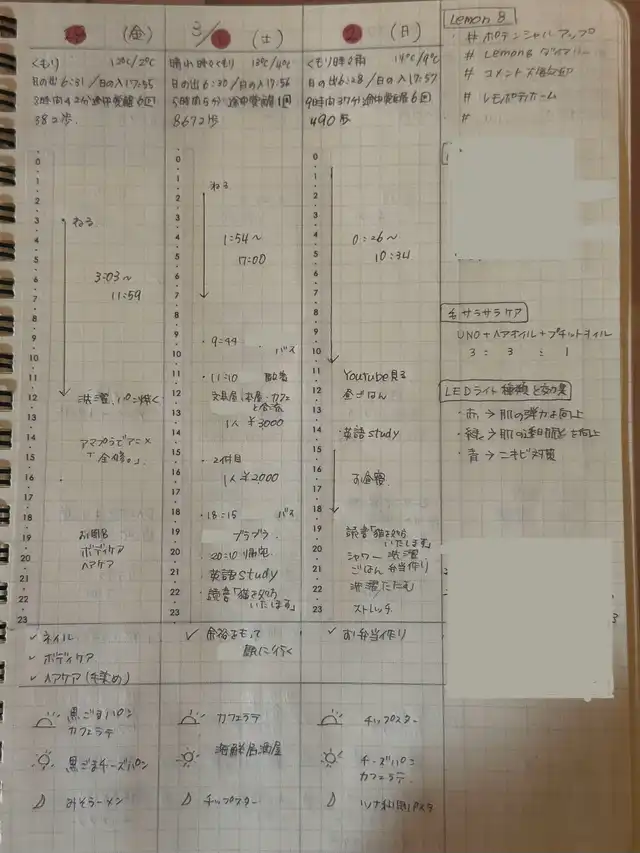 (金)
くもり 12℃/2℃
日の出 6:31 /日の入 17:55
8時間42分 途中覚醒6回
382歩
0
1
2
3 ねる
4
5
6 3:03～
7 11:59
8
9
10
11
12 洗濯、パン焼く
13
14 アマプラでアニメ
15
16
17
18
19 お風呂
20 ボディケア
21 ヘアケア
22
23
✓ ネイル
✓ ボディケア
✓ ヘアケア(毛染め)
黒ごまパン
カフェラテ
黒ごまチーズパン
みそラーメン
3/1 (土)
晴れ時々くもり
日の出 6:30 /日の入 17:56
5時間5分 途中覚醒1回
8672歩
0
1 ねる
2
3
4 1:54～
5 7:00
6
7
8
9
10 ・9=44 バス
11 ・11:10
12 文具屋、本屋、カフェ
13 と
1人 ¥3000
14
15 ・2件目
16 1人 ¥2000
17
18 ・18=15 バス
19 ブラブラ
20 ・20=10 帰宅
21 英語study
22 読書「猫を処方
23 いたします」
✓ 余裕をもって
駅に行く
カフェラテ
海鮮居酒屋
チップスター
2 (日)
くもり時々雨 14℃/9℃
日の出 6:28 /日の入 17:57
9時間37分 途中覚醒6回
490歩
0
1
2
3
4 0:26～
5 10:34
6
7
8
9
10
11 Youtube見る
12 昼ごはん
13
14 英語study
15
16 お昼寝
17
18
19 読書「猫を処方
いたします」
20 シャワー 洗濯
21 ごはん 弁当作り
22 洗濯たたむ
23 ストレッチ
✓ お弁当作り
チップスター
チーズパン
カフェラテ
Lemon 8
# ポテンシャルアップ
# Lemon8ダイアリー
# コメント大歓迎
# レモンポテホーム
#
毛サラサラケア
UNO+ヘアオイル+プチットオイル
3 : 3 : 1
LEDライト種類と効果
・赤→肌の弾力を向上
・緑→肌の透明感を向上
・青→ニキビ対策